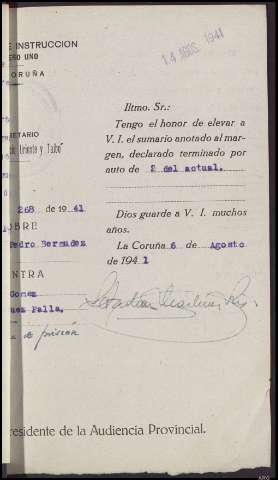 14 AGOS. 1941
E INSTRUCCION
ERO UNO
CORUÑA
RETARIO
Uriente y Taibo
268 de 1941
OBRE
Pedro Bermudez
NTRA
Gomez
uez Falla,
de prisión
Iltmo. Sr.:
Tengo el honor de elevar a
V. I. el sumario anotado al mar-
gen, declarado terminado por
auto de 2 del actual.
Dios guarde a V. I. muchos
años.
La Coruña 6 de Agosto
de 1941
residente de la Audiencia Provincial.